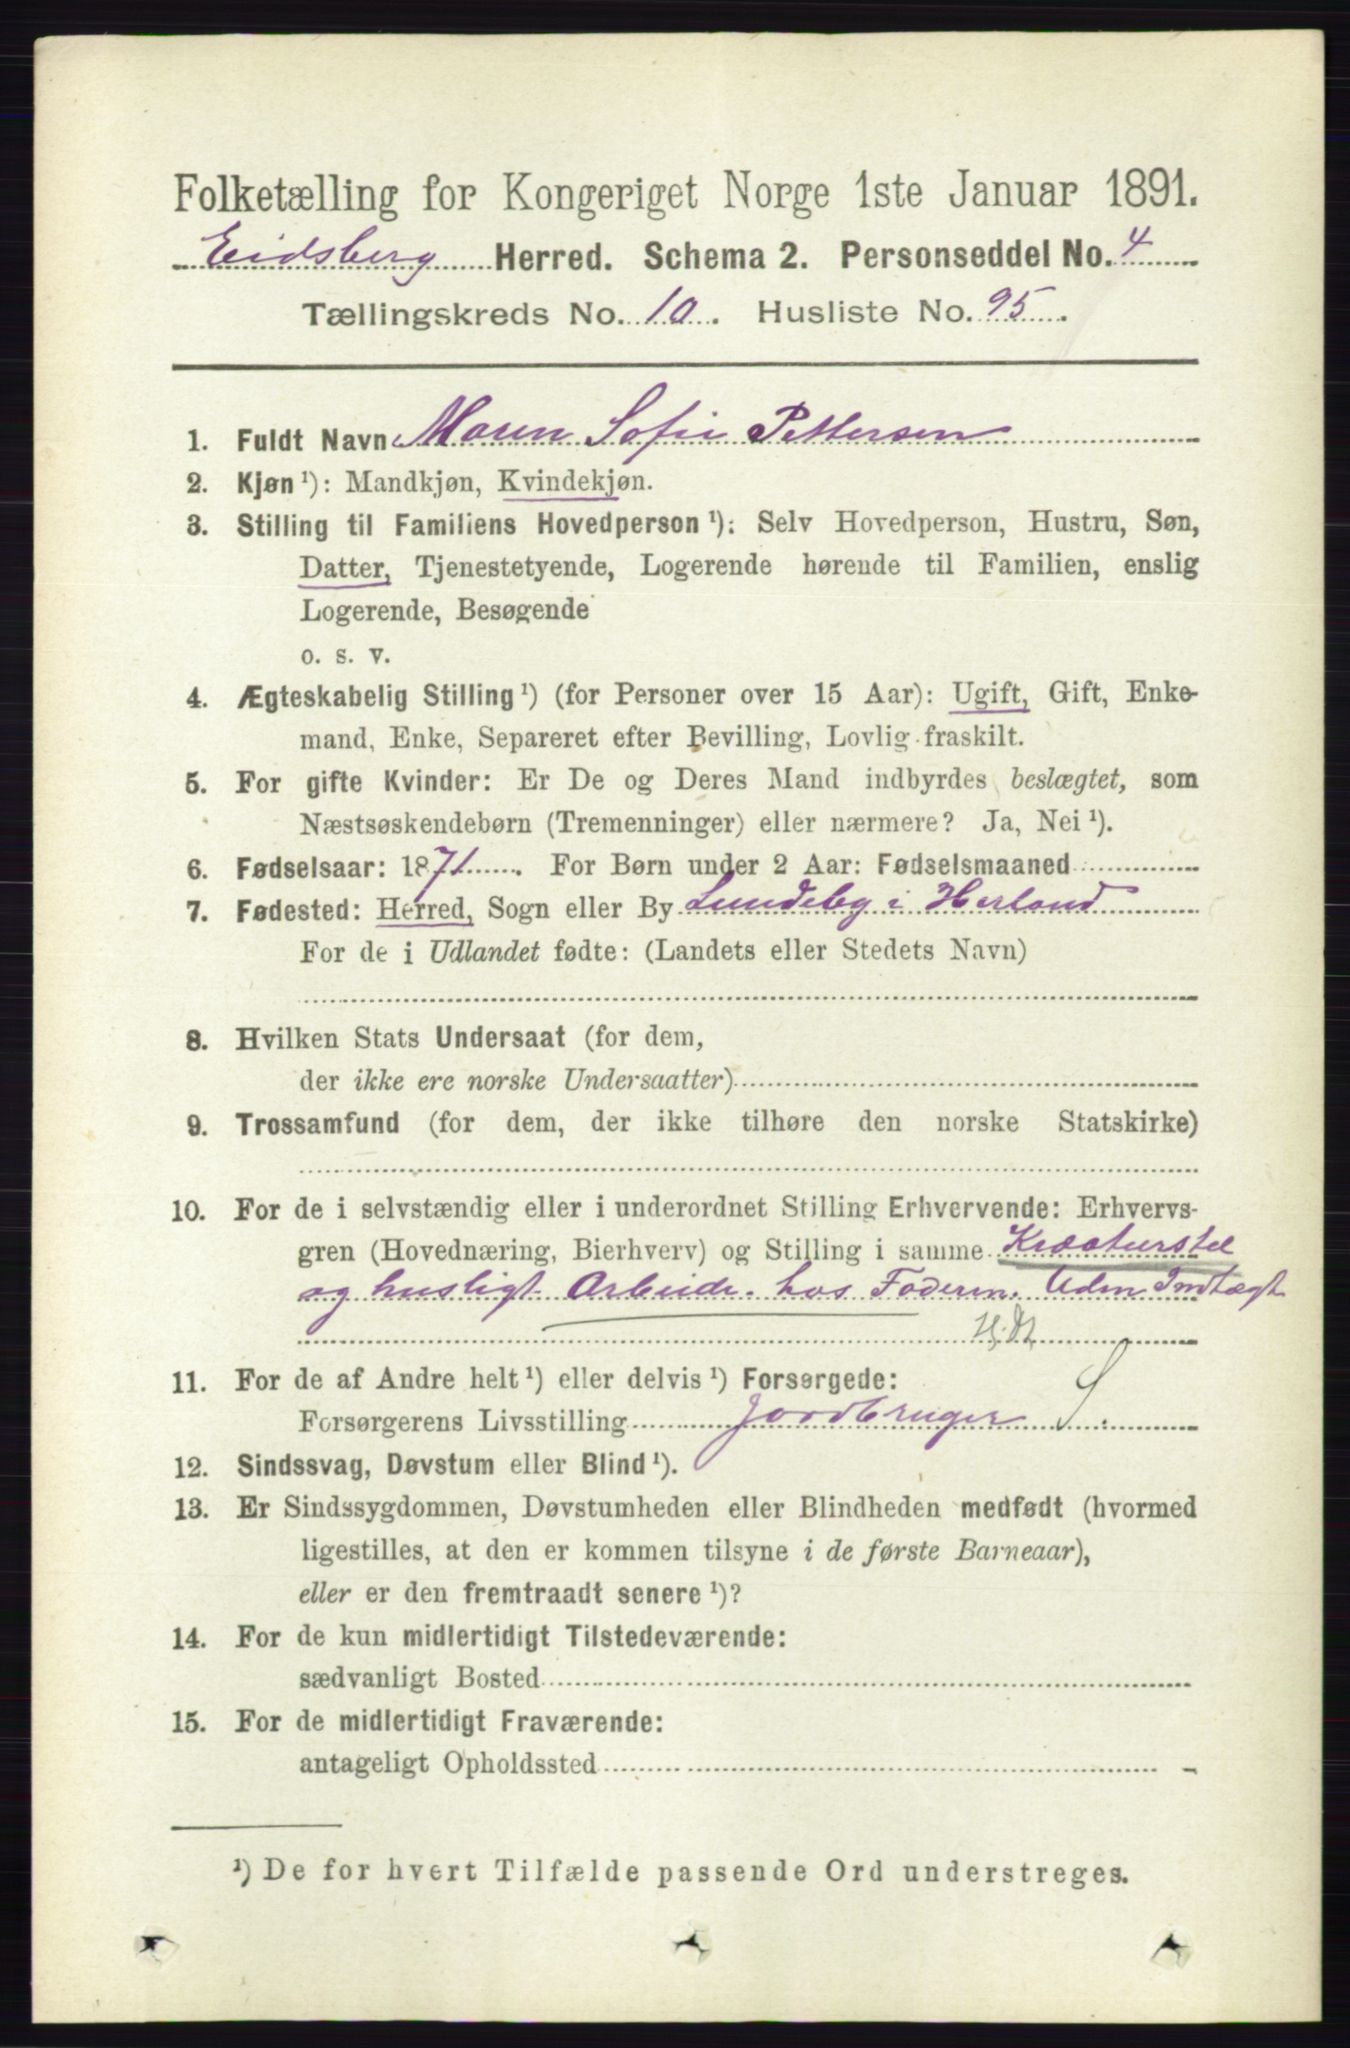 Folketælling for Kongeriget Norge 1ste Januar 1891.
Eidsberg Herred. Schema 2. Personseddel No. 4
Tællingskreds No. 10. Husliste No. 95.
1. Fuldt Navn Maren Sofie Pettersen
2. Kjøn ¹): Mandkjøn, Kvindekjøn.
3. Stilling til Familiens Hovedperson ¹): Selv Hovedperson, Hustru, Søn,
Datter, Tjenestetyende, Logerende hørende til Familien, enslig
Logerende, Besøgende
o. s. v.
4. Ægteskabelig Stilling ¹) (for Personer over 15 Aar): Ugift, Gift, Enke-
mand, Enke, Separeret efter Bevilling, Lovlig fraskilt.
5. For gifte Kvinder: Er De og Deres Mand indbyrdes beslægtet, som
Næstsøskendebørn (Tremenninger) eller nærmere? Ja, Nei ¹).
6. Fødselsaar: 1871. For Børn under 2 Aar: Fødselsmaaned
7. Fødested: Herred, Sogn eller By Lundeby i Herland
For de i Udlandet fødte: (Landets eller Stedets Navn)
8. Hvilken Stats Undersaat (for dem,
der ikke ere norske Undersaatter)
9. Trossamfund (for dem, der ikke tilhøre den norske Statskirke)
10. For de i selvstændig eller i underordnet Stilling Erhvervende: Erhvervs-
gren (Hovednæring, Bierhverv) og Stilling i samme Kreaturstel
og husligt Arbeide hos Faderen. Uden Indtægt
11. For de af Andre helt ¹) eller delvis ¹) Forsørgede: S.
Forsørgerens Livsstilling Jordbruger
12. Sindssvag, Døvstum eller Blind ¹).
13. Er Sindssygdommen, Døvstumheden eller Blindheden medfødt (hvormed
ligestilles, at den er kommen tilsyne i de første Barneaar),
eller er den fremtraadt senere ¹)?
14. For de kun midlertidigt Tilstedeværende:
sædvanligt Bosted
15. For de midlertidigt Fraværende:
antageligt Opholdssted
¹) De for hvert Tilfælde passende Ord understreges.